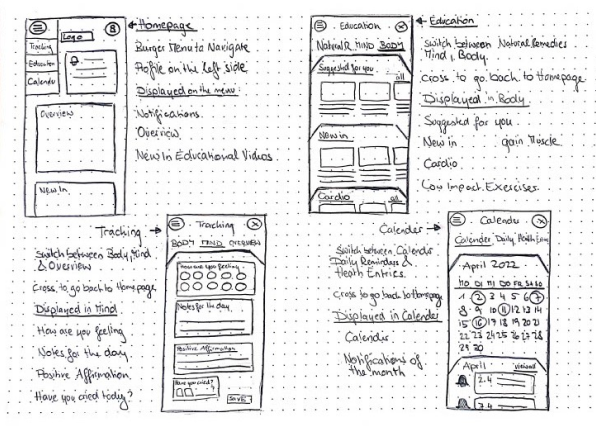 Tracking
Education
Calender
Logo
Overview
New In
Homepage
Burger Menu to Navigate
Profile on the left side
Displayed on the menu:
Notifications
Overview
New In Educational Videos
Education
Natural R. MIND BODY
Suggested for you
all
New in
Cardio
all
Education
Switch between Natural Remedies
Mind & Body.
Cross to go back to Homepage
Displayed in Body
Suggested for you
New in gain Muscle
Cardio
Low Impact Exercises
Tracking
Switch between Body, Mind
& Overview
Cross to go back to Homepage
Displayed in Mind
How are you feeling
Notes for the day
Positive Affirmation
Have you cried today?
Tracking
BODY MIND OVERVIEW
How are you feeling
Notes for the day
Positive Affirmation
Have you cried?
SAVE
Calender
Switch between Calender
Daily Reminders &
Health Entries.
Cross to go back to Homepage
Displayed in Calender
Calendar
Notifications of
the month
Calender
Calender Daily Health
April 2022
MO DI MI DO FR SA SO
1 2 3 4 5 6 7
8 9 10 11 12 13 14
15 16 17 18 19 20 21
22 23 24 25 26 27 28
29 30
April
2.4
7.4